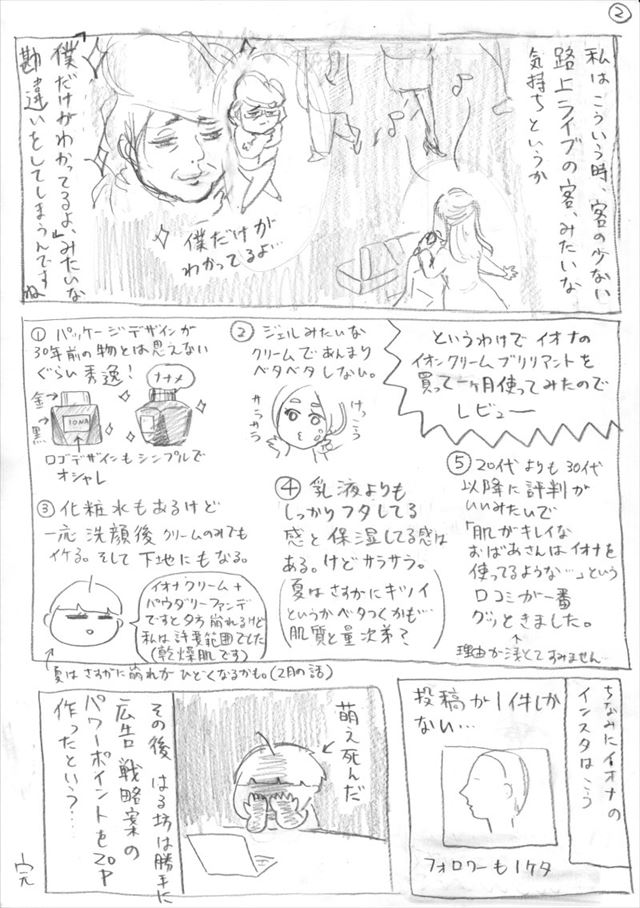 ②
私はこういう時、客の少ない
路上ライブの客、みたいな
気持ちというか
僕だけが
わかってるよ…
「僕だけがわかってるよ」みたいな
勘違いをしてしまうんですね
というわけでイオナの
イオンクリームブリリアントを
買って一ヶ月使ってみたので
レビュー
① パッケージデザインが
30年前の物とは思えない
ぐらい秀逸!
金→
黒→
IONA
ナナメ
ロゴデザインもシンプルで
オシャレ
② ジェルみたいな
クリームであんまり
ベタベタしない。
サラサラ
けっこう
③ 化粧水もあるけど
一応 洗顔後 クリームのみでも
イケる。そして 下地にもなる。
イオナクリーム+
パウダリーファンデ
ですと夕方 崩れるけど
私は許容範囲でした
(乾燥肌です)
夏はさすがに崩れがひどくなるかも。(2月の話)
④ 乳液よりも
しっかりフタしてる
感と保湿してる感は
ある。けどサラサラ。
(夏はさすがにキツイ
というかベタつくかも…
肌質と量次第?)
⑤ 20代よりも30代
以降に評判が
いいみたいで
「肌がキレイな
おばあさんはイオナを
使ってるような…」という
口コミが一番
グッときました。
理由が浅くてすみません…
ちなみにイオナの
インスタはこう
投稿が1件しか
ない…
フォロワーも1ケタ
萌え死んだ
その後 はる坊は勝手に
広告戦略案の
パワーポイントを20P
作ったという…
完